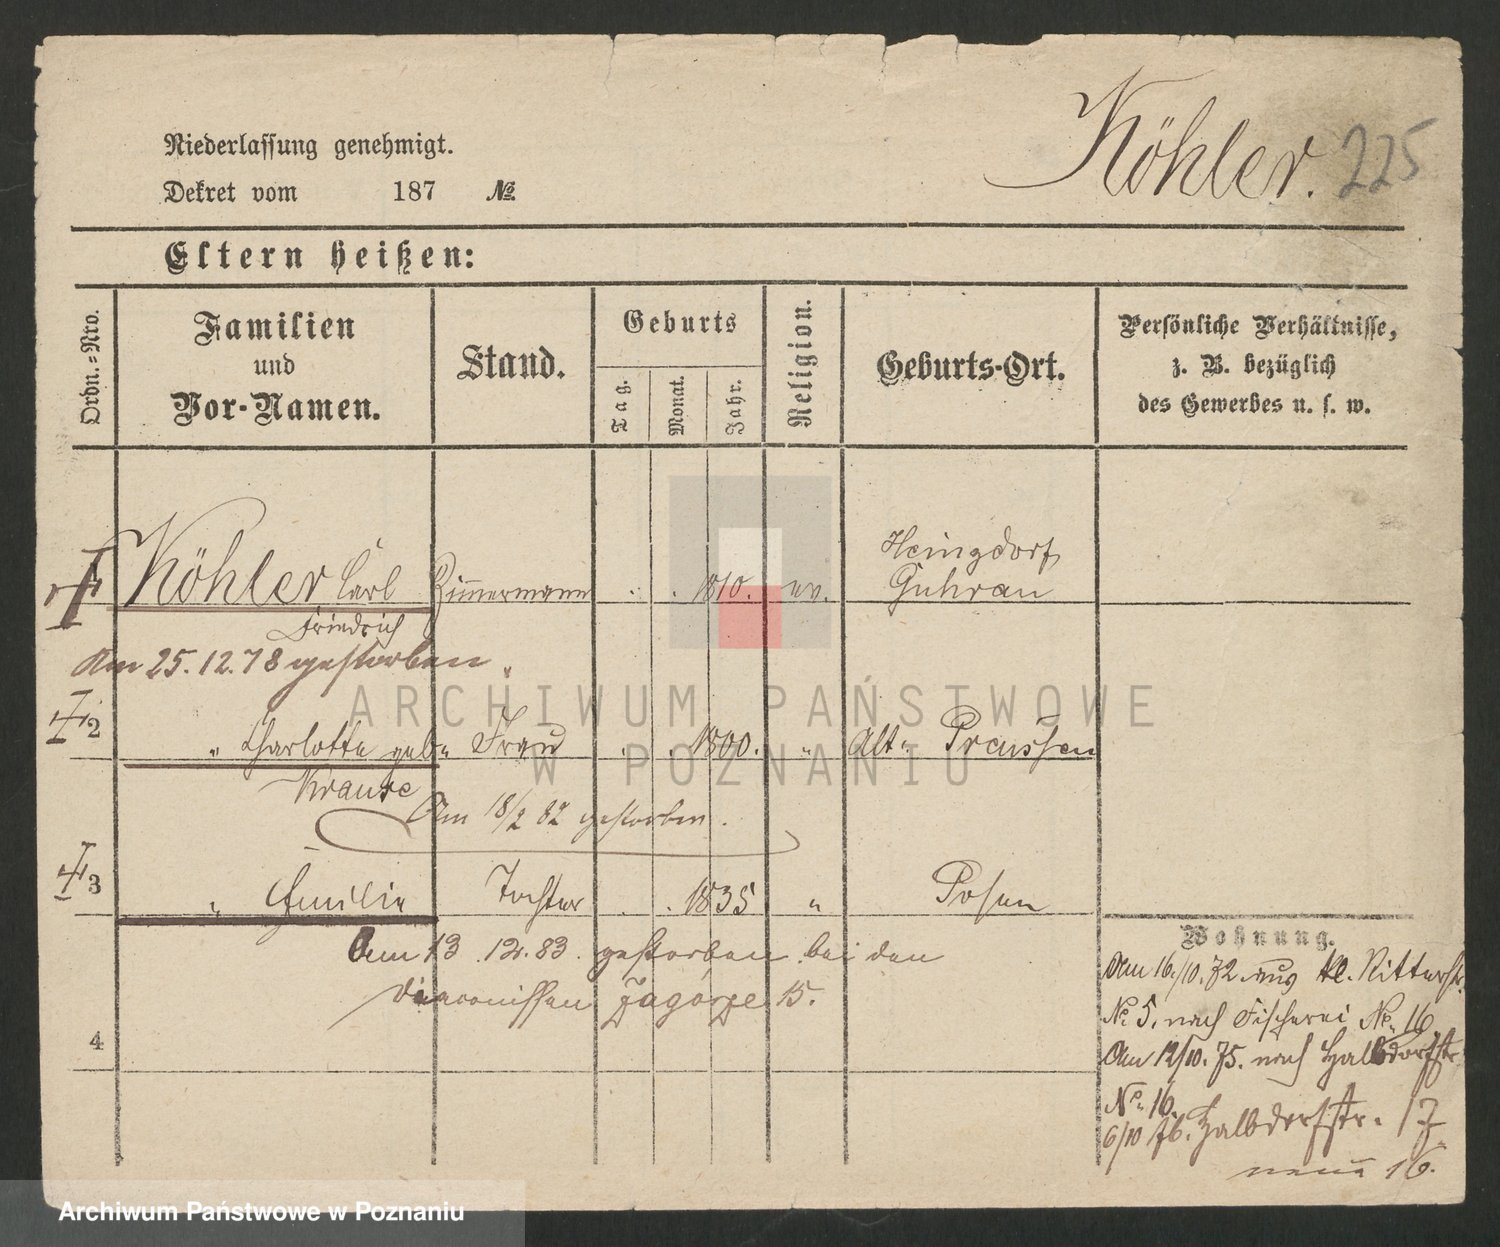 Köhler. 225
Niederlassung genehmigt.
Dekret vom 187 №
Eltern heißen:
Ordn.=Nro.
Familien
und
Vor-Namen.
Stand.
Geburts
Tag. Monat. Jahr.
Religion.
Geburts-Ort.
Persönliche Verhältnisse,
z. B. bezüglich
des Gewerbes u. s. w.
Köhler Carl Zimmermann . . 1810. ev. Heingdorf
Guhrau
Friedrich
Am 25.12.78 gestorben.
2 " Charlotte geb. Frau . . 1800. " Alt. Preussen
Krause
Am 18/2 82 gestorben.
3 " Emilie Tochter . . 1835 " Posen
Am 13.12.83. gestorben bei den
Diaconissen Zagórze 15.
4
Wohnung.
Am 16./10. 72 aus kl. Ritterstr.
№ 5. nach Fischerei № 16
Am 12/10. 75. nach Halbdorfstr.
№ 16.
6/10 76. Halbdorfstr. 17
16.
ARCHIWUM PAŃSTWOWE
W POZNANIU
Archiwum Państwowe w Poznaniu